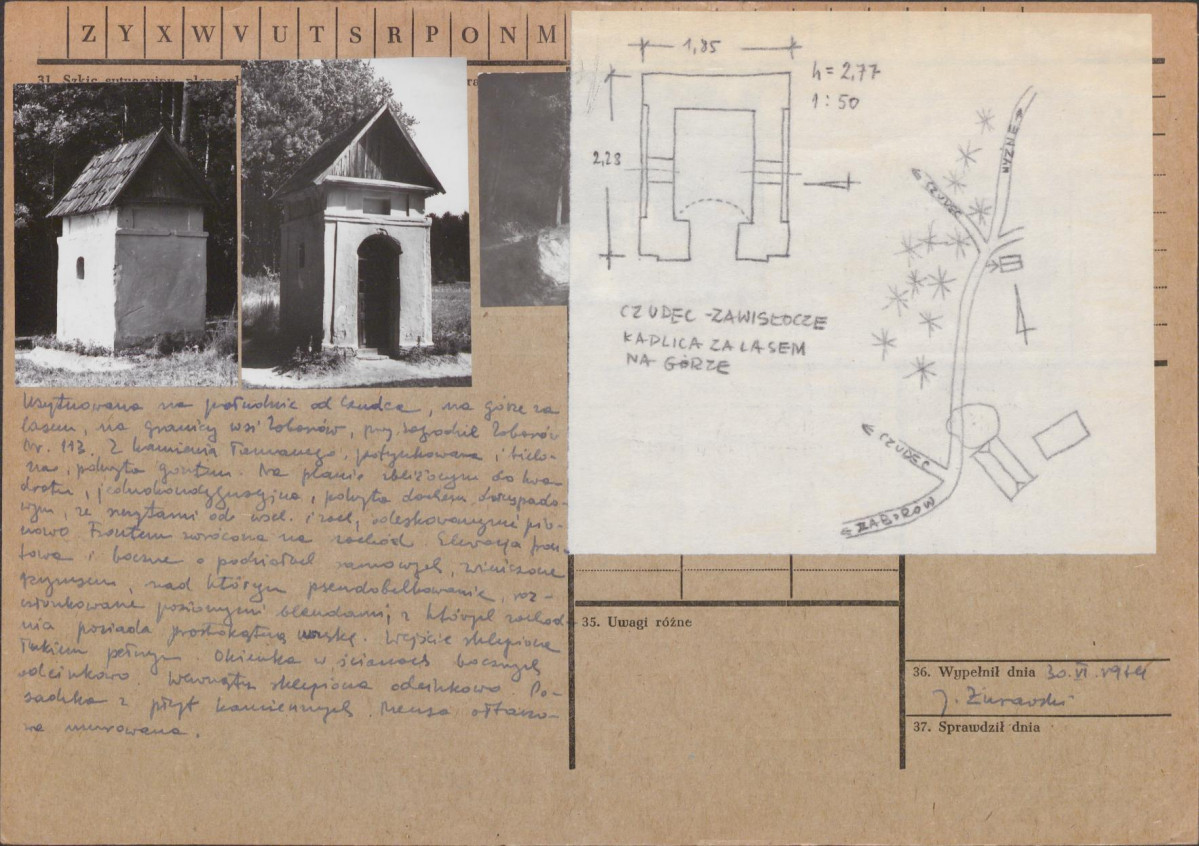 Z Y X W V U T S R P O N M
31. Szkic sytuacyjny, plan
Usytuowana na południe od Czudca, na górze za
lasem, na granicy wsi Zaborów, przy zagrodzie Zaborów
Nr. 113. Z kamienia łamanego, potynkowana i bielo-
na, pokryta gontem. Na planie zbliżonym do kwa-
dratu, jednokondygnacyjna, pokryta dachem dwuspado-
wym, ze szczytami od wsch. i zach. odeskowanymi pio-
nowo. Frontem zwrócona na zachód. Elewacja fron-
towa i boczne o podziałach ramowych, zwieńczone
gzymsem, nad którym pseudobelkowanie, roz-
członkowane poziomymi blendami, z których zachod-
nia posiada prostokątną wnękę. Wejście sklepione
łukiem pełnym. Okienka w ścianach bocznych
odcinkowo. Wewnątrz sklepiona odcinkowo. Po-
sadzka z płyt kamiennych. Mensa ołtarzo-
wa murowana.
1,85
h = 2,77
1 : 50
2,23
CZUDEC - ZAWISŁOCZE
KAPLICA ZA LASEM
NA GÓRZE
CZUDEC
CZUDEC
ZABORÓW
35. Uwagi różne
36. Wypełnił dnia 30.VI.
J. Żurawski
37. Sprawdził dnia